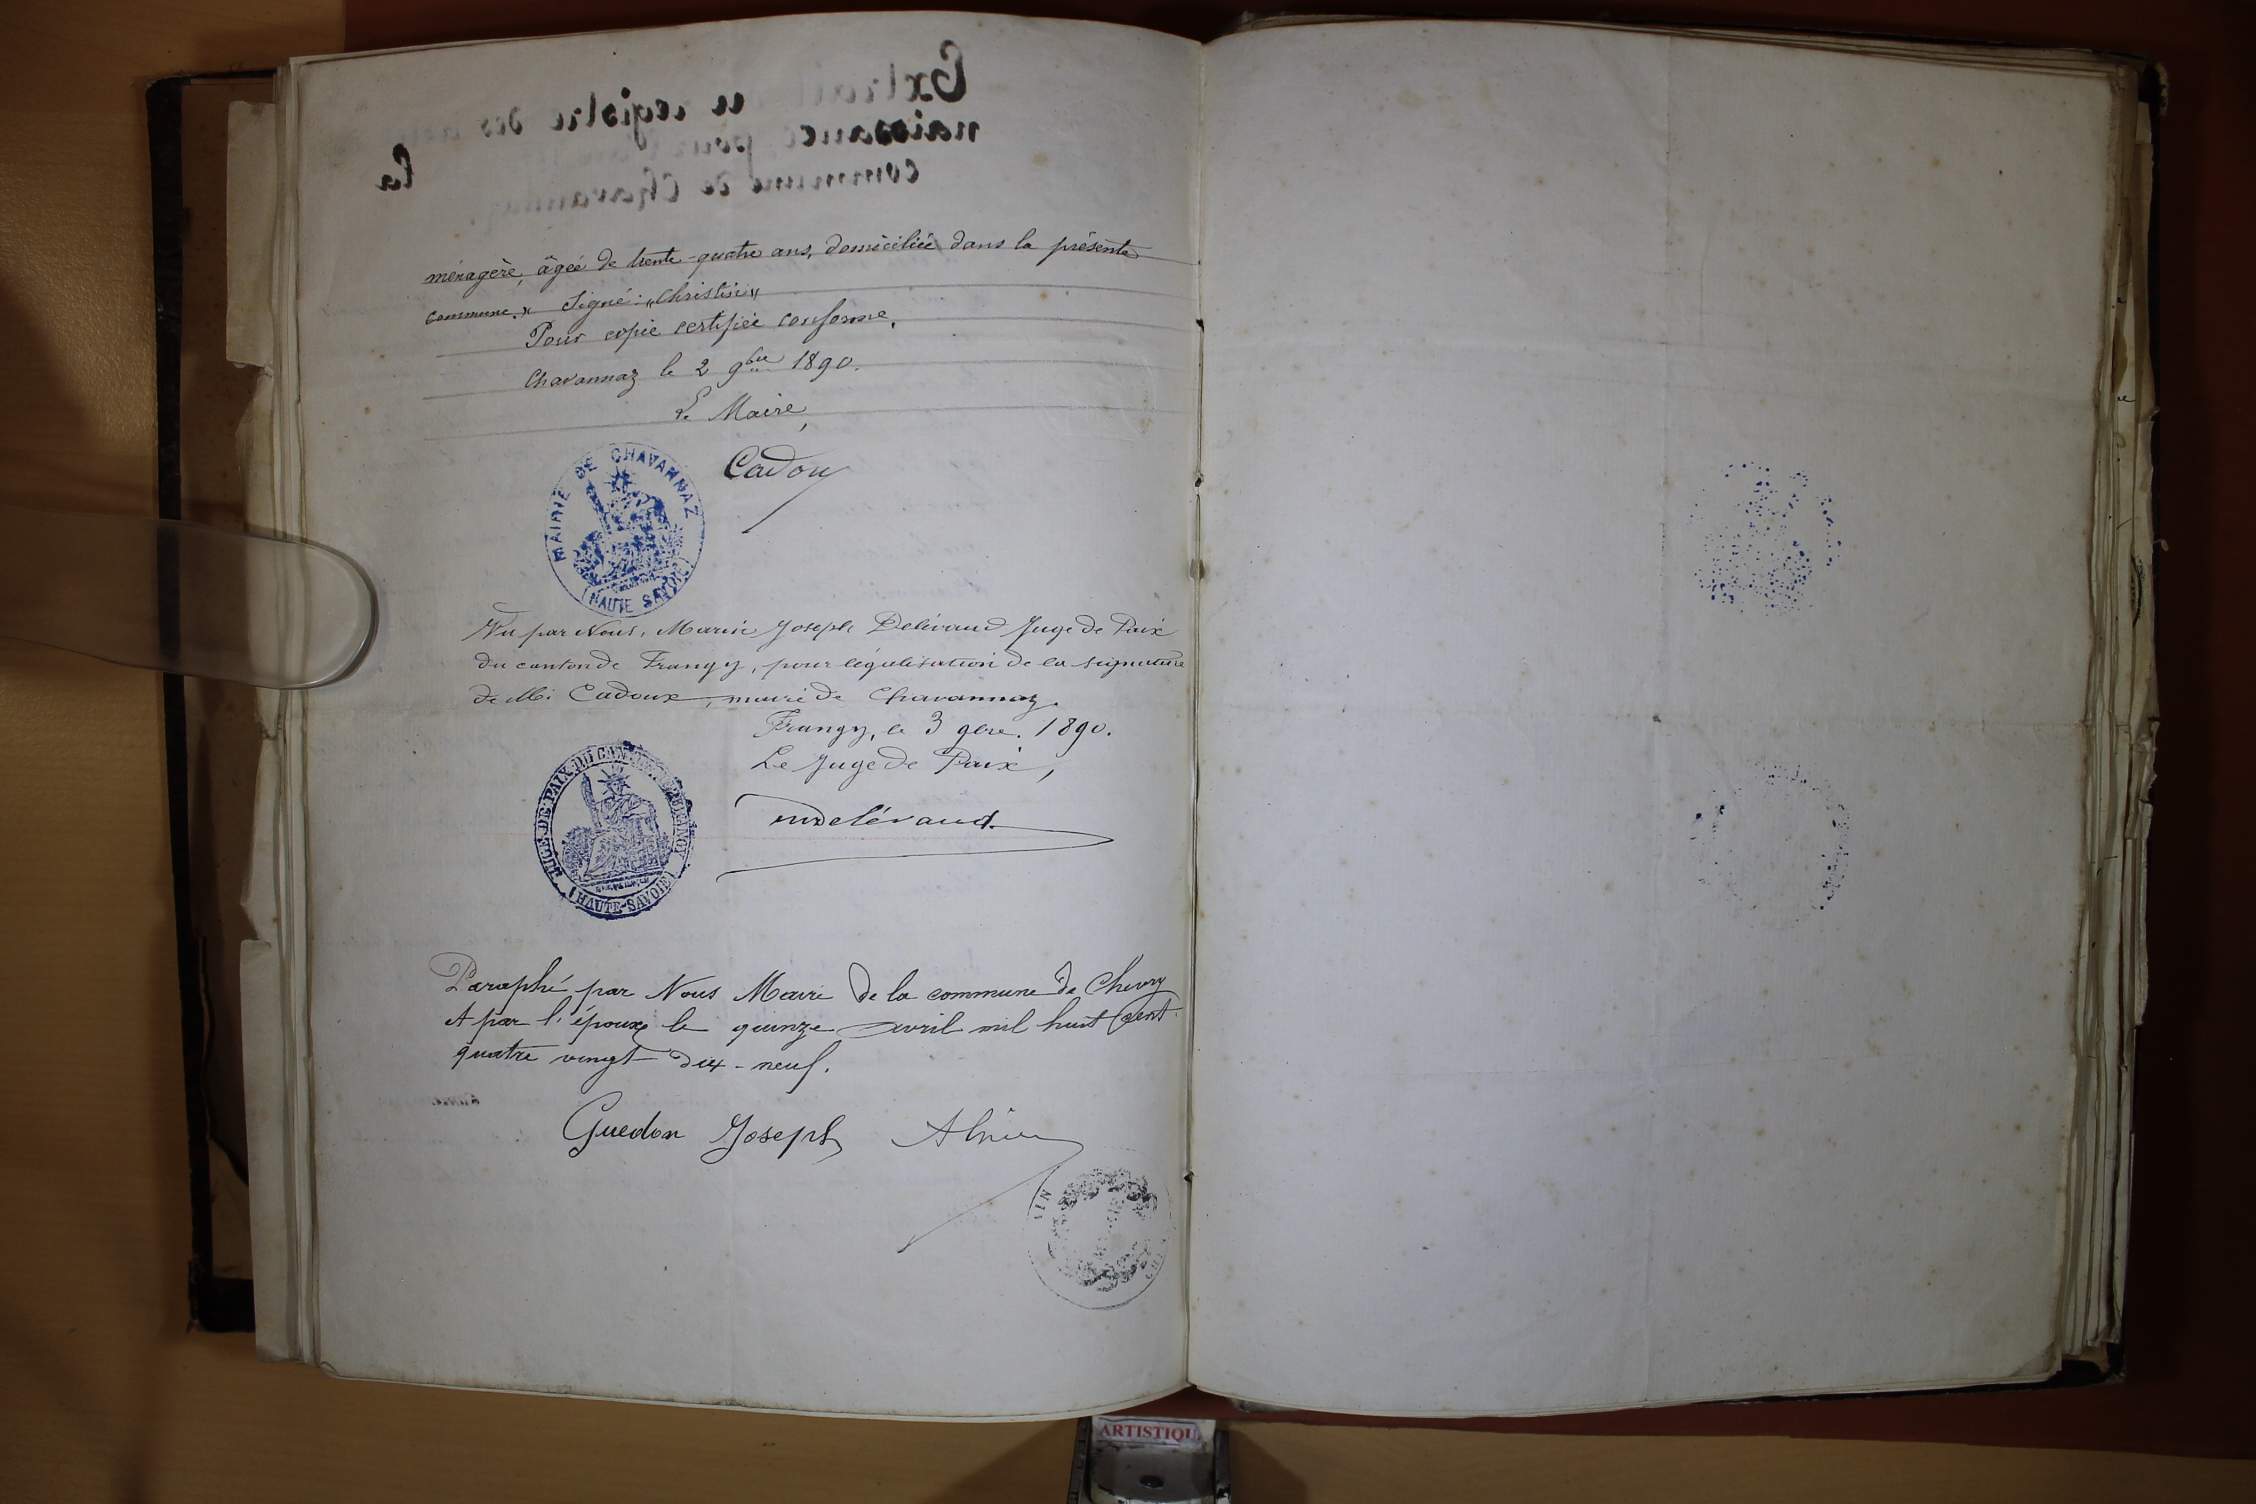 Extrait du registre des actes de
naissance pour
la
commune de Chavannaz
ménagère, âgée de trente-quatre ans, domiciliée dans la présente
commune. » Signé : "Christin"
Pour copie certifiée conforme.
Chavannaz le 2 9bre 1890.
Le Maire,
Cadoux
MAIRIE DE CHAVANNAZ
(HAUTE SAVOIE)
Vu par Nous, Marin Joseph Delévaud Juge de Paix
du canton de Frangy, pour législisation de la signature
de Mr Cadoux, maire de Chavannaz.
Frangy, le 3 9bre. 1890.
Le Juge de Paix,
Delévaud
JUGE DE PAIX DU CANTON DE FRANGY
(HAUTE-SAVOIE)
Paraphé par Nous Maire de la commune de Chevry
et par l'époux le quinze avril mil huit cent
quatre vingt dix-neuf.
Guedon Joseph
AIN
ARTISTIQU